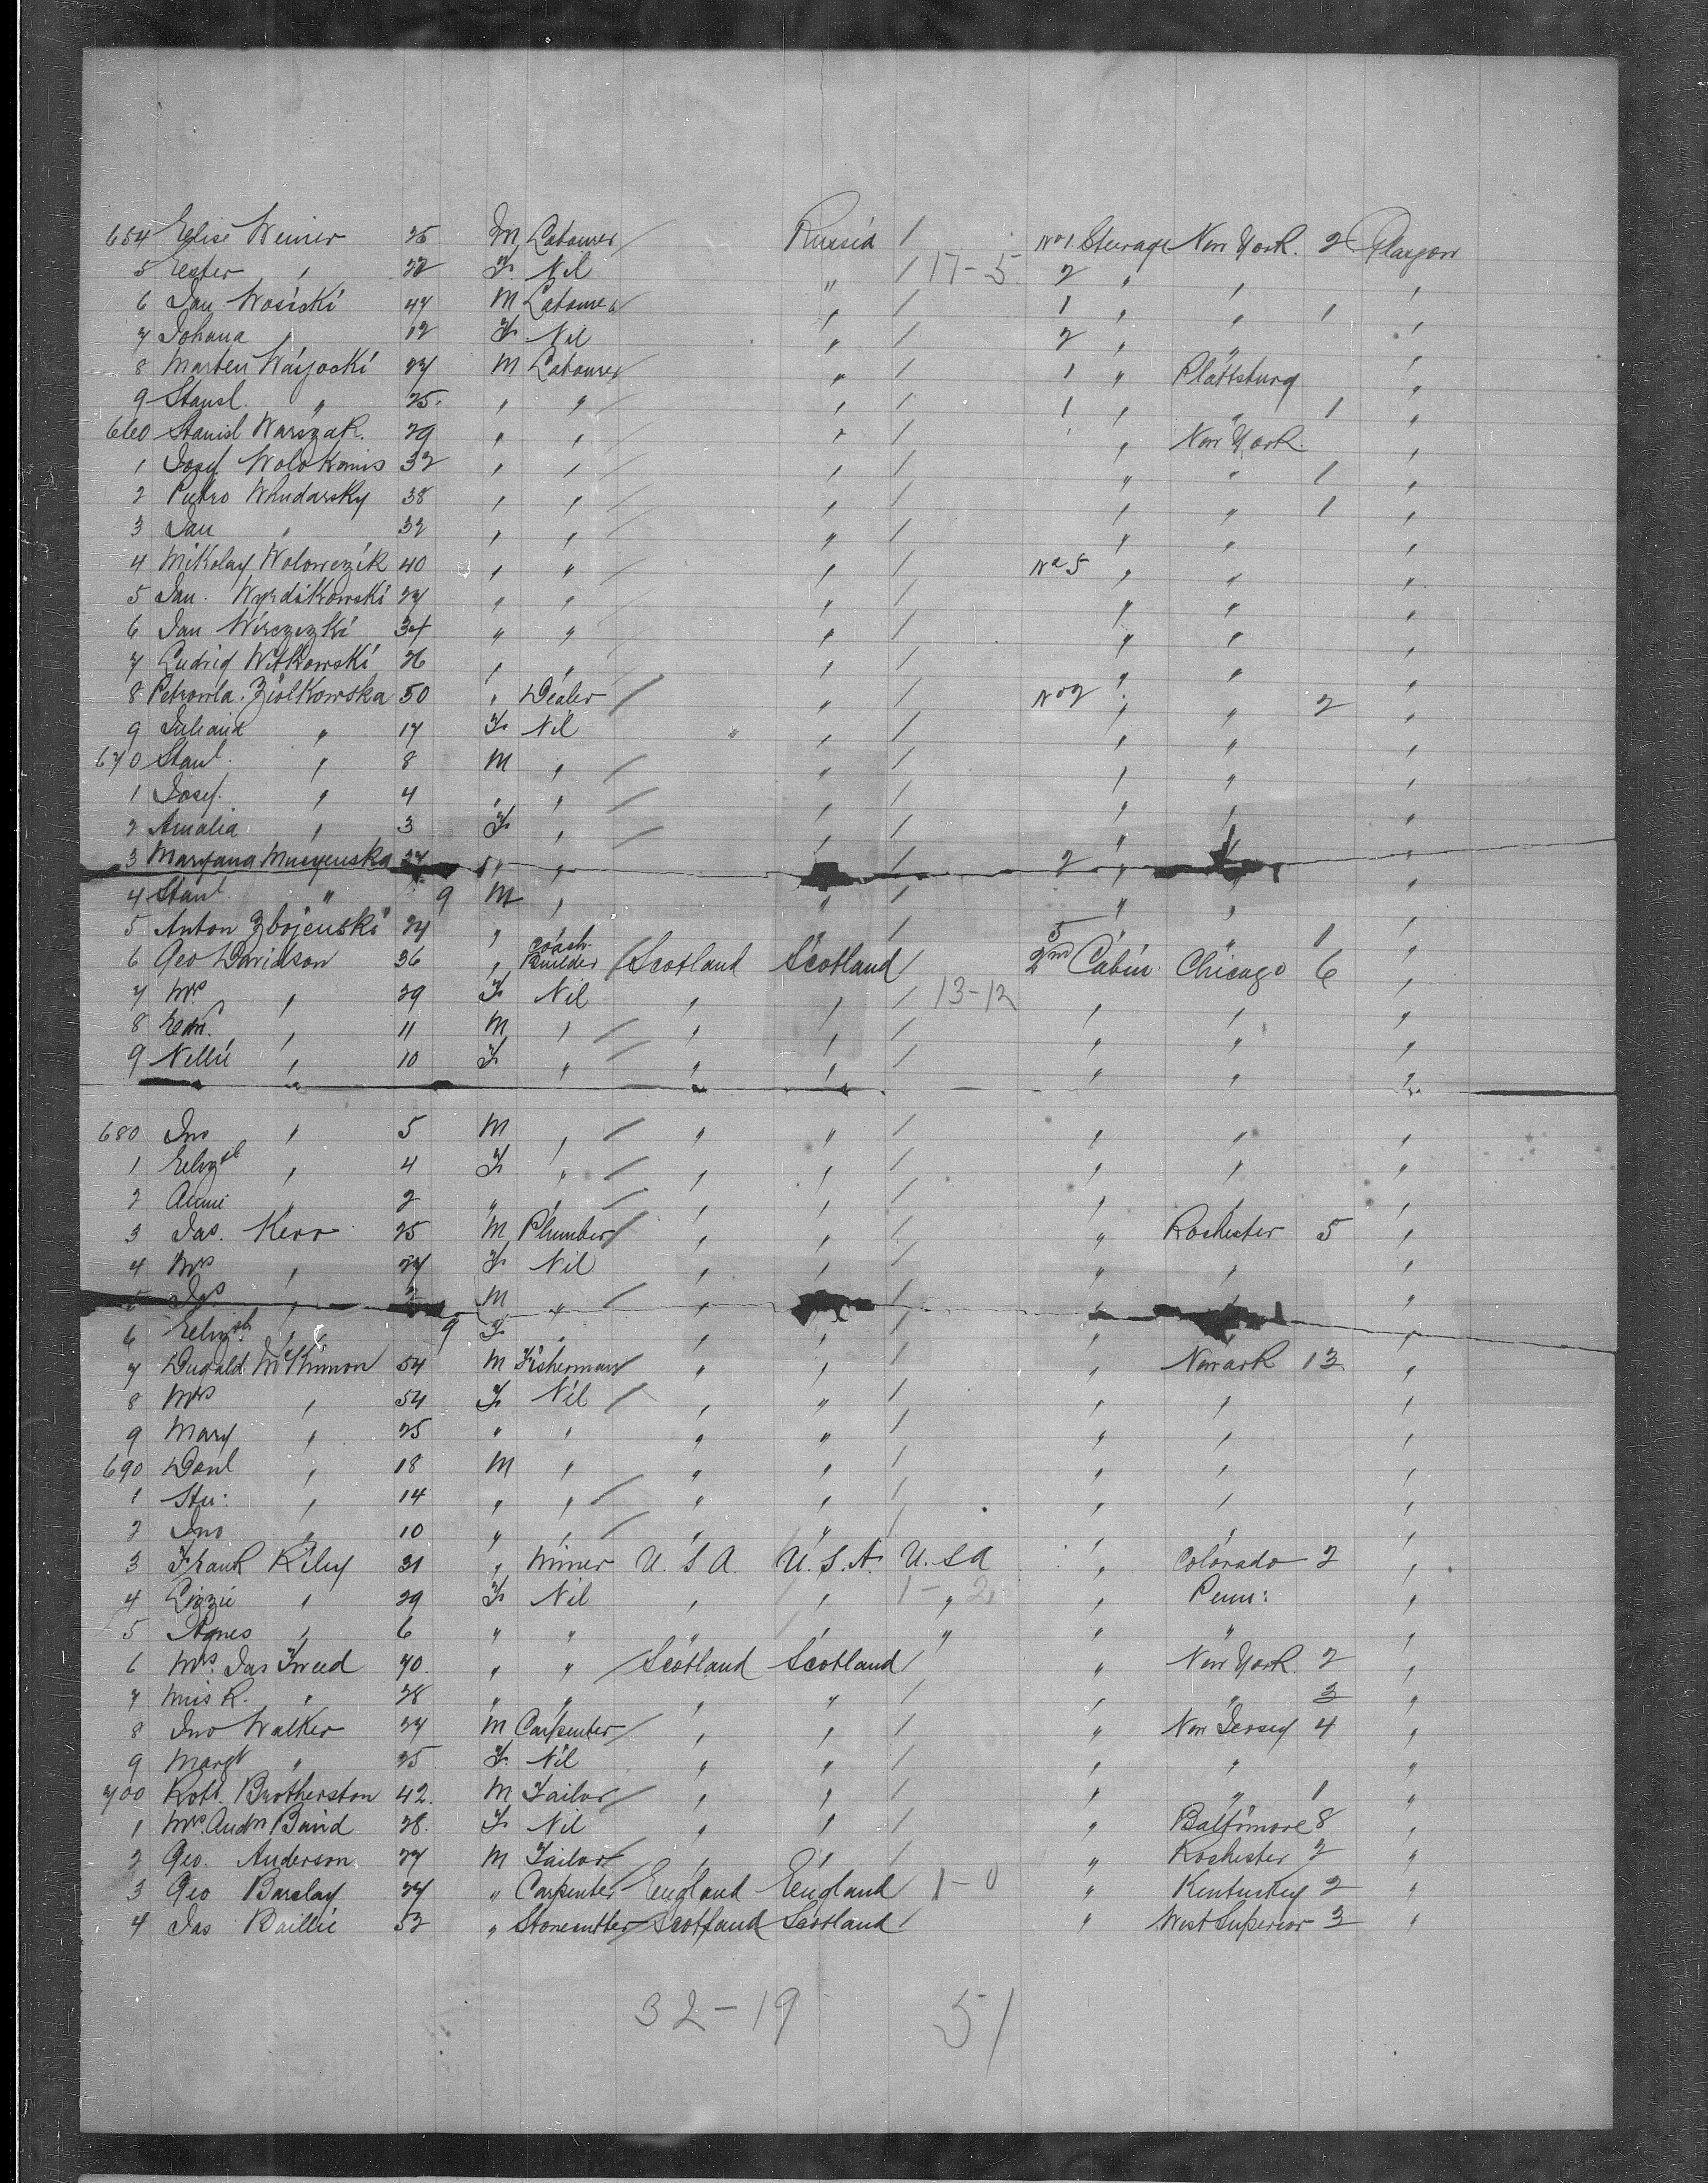 654 Elise Weiner 25 M Labourer Russia / No 1. Steerage New York. 2 Glasgow
5 Ester " 22 F. Nil " / 17-5 2 " " "
6 Jan Wosicki 47 M Labourer " / 1 " " 1 "
7 Johana " 12 F Nil " / 2 " " "
8 Marten 27 M Labourer " / 1 " Plattsburg "
9 Stansl. " 25. " " " / 1 " " 1 "
660 Stanisl Warszak. 29 " " " / " New York "
1 Josef 32 " " " / " " 1 "
2 Pietro 38 " " " / " " 1 "
3 Jan " 32 " " " / " " "
4 Mikolay Wolowczik 40 " " " / No 5 " " "
5 Jan. 27 " " " / " " "
6 Jan 34 " " " / " " "
7 Ludwig Witkowski 26 " " " / " " "
8 Petrowla. Ziolkowska 50 " Dealer " / No 2 " " 2 "
9 Juliana " 17 F Nil " " / " " "
670 Stanl. " 8 M " " / " " "
1 Josef. " 4 " " " / " " "
2 Amalia " 3 F " " / " " "
3 Maryana " " / 2 " "
4 Stanl " 9 M " " / " " "
5 Anton Zbojenski 24 " " / 5 " " 1 "
6 Geo Davidson 36 " Coach Builder Scotland Scotland / 2nd Cabin Chicago 6 "
7 Mrs " 29 F Nil " " / 13-12 " " "
8 Edw. " 11 M " " " / " " "
9 Nellie " 10 F " " " / " " "
680 Jno " 5 M " " " / " " "
1 Elizth " 4 F " " " / " " "
2 Annie " 2 " " " " / " " "
3 Jas. Kerr 25 M Plumber " " / " Rochester 5 "
4 Mrs " 27 F Nil " " / " " "
5 Jas " M " " / " "
6 Elizth " 9 F " " " / " " "
7 Dugald McKinnon 54 M Fisherman " " / " Newark 13 "
8 Mrs " 54 F Nil " " / " " "
9 Mary " 25 " " " " / " " "
690 Danl " 18 M " " " / " " "
1 " 14 " " " " / " " "
2 Jno " 10 " " " " / " " "
3 Frank Riley 31 " Miner U. S A. U. S. A. U. S A " Colorado 2 "
4 Lizzie " 29 F Nil " " 1- " 2 " Penn: "
5 Agnes " 6 " " " " " " " "
6 Mrs. Jas Tweed 70. " " Scotland Scotland / " New York. 2 "
7 Miss R. " 28 " " " " / " " 3 "
8 Jno Walker 27 M Carpenter " " / " New Jersey 4 "
9 Margt " 25 F. Nil " " / " " "
700 Robt. Brotherston 42. M Tailor " " / " " 1 "
1 Mrs. Andw Baird 28. F Nil " " / " Baltimore 8 "
2 Geo. Anderson 27 M Tailor " " / " Rochester 2 "
3 Geo Barclay 27 " Carpenter England England 1-0 " Kentucky 2 "
4 Jas Baillie 52 " Stonecutter Scotland Scotland / " West Superior 3 "
32-19 51